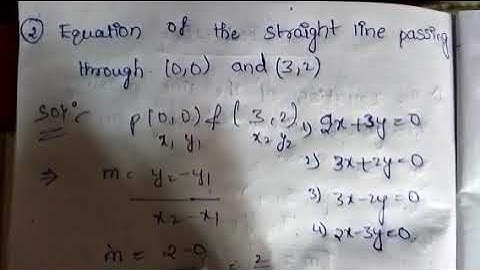 ② Equation of the straight line passing
through (0,0) and (3,2)
Sol:
P(0,0) & (3,2)
x₁ y₁ x₂ y₂
1) 2x+3y=0
2) 3x+2y=0
3) 3x-2y=0
4) 2x-3y=0
⇒ m = y₂-y₁
x₂-x₁
m = 2-0
= 2